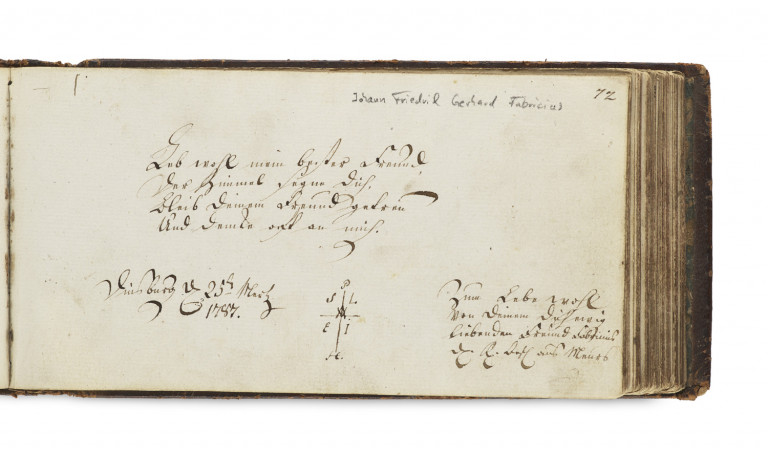 Johann Friedrich Gerhard Fabricius
72
Leb wohl mein bester Freund,
Der Himmel segne dich.
Bleib deinem Freund getreu
Und denke oft an mich.
Duisburg d 25t Mertz
1787.
S L
E I
Zum Lebe wohl
von deinem dich ewig
liebenden Freund Fabricius
aus Meurs